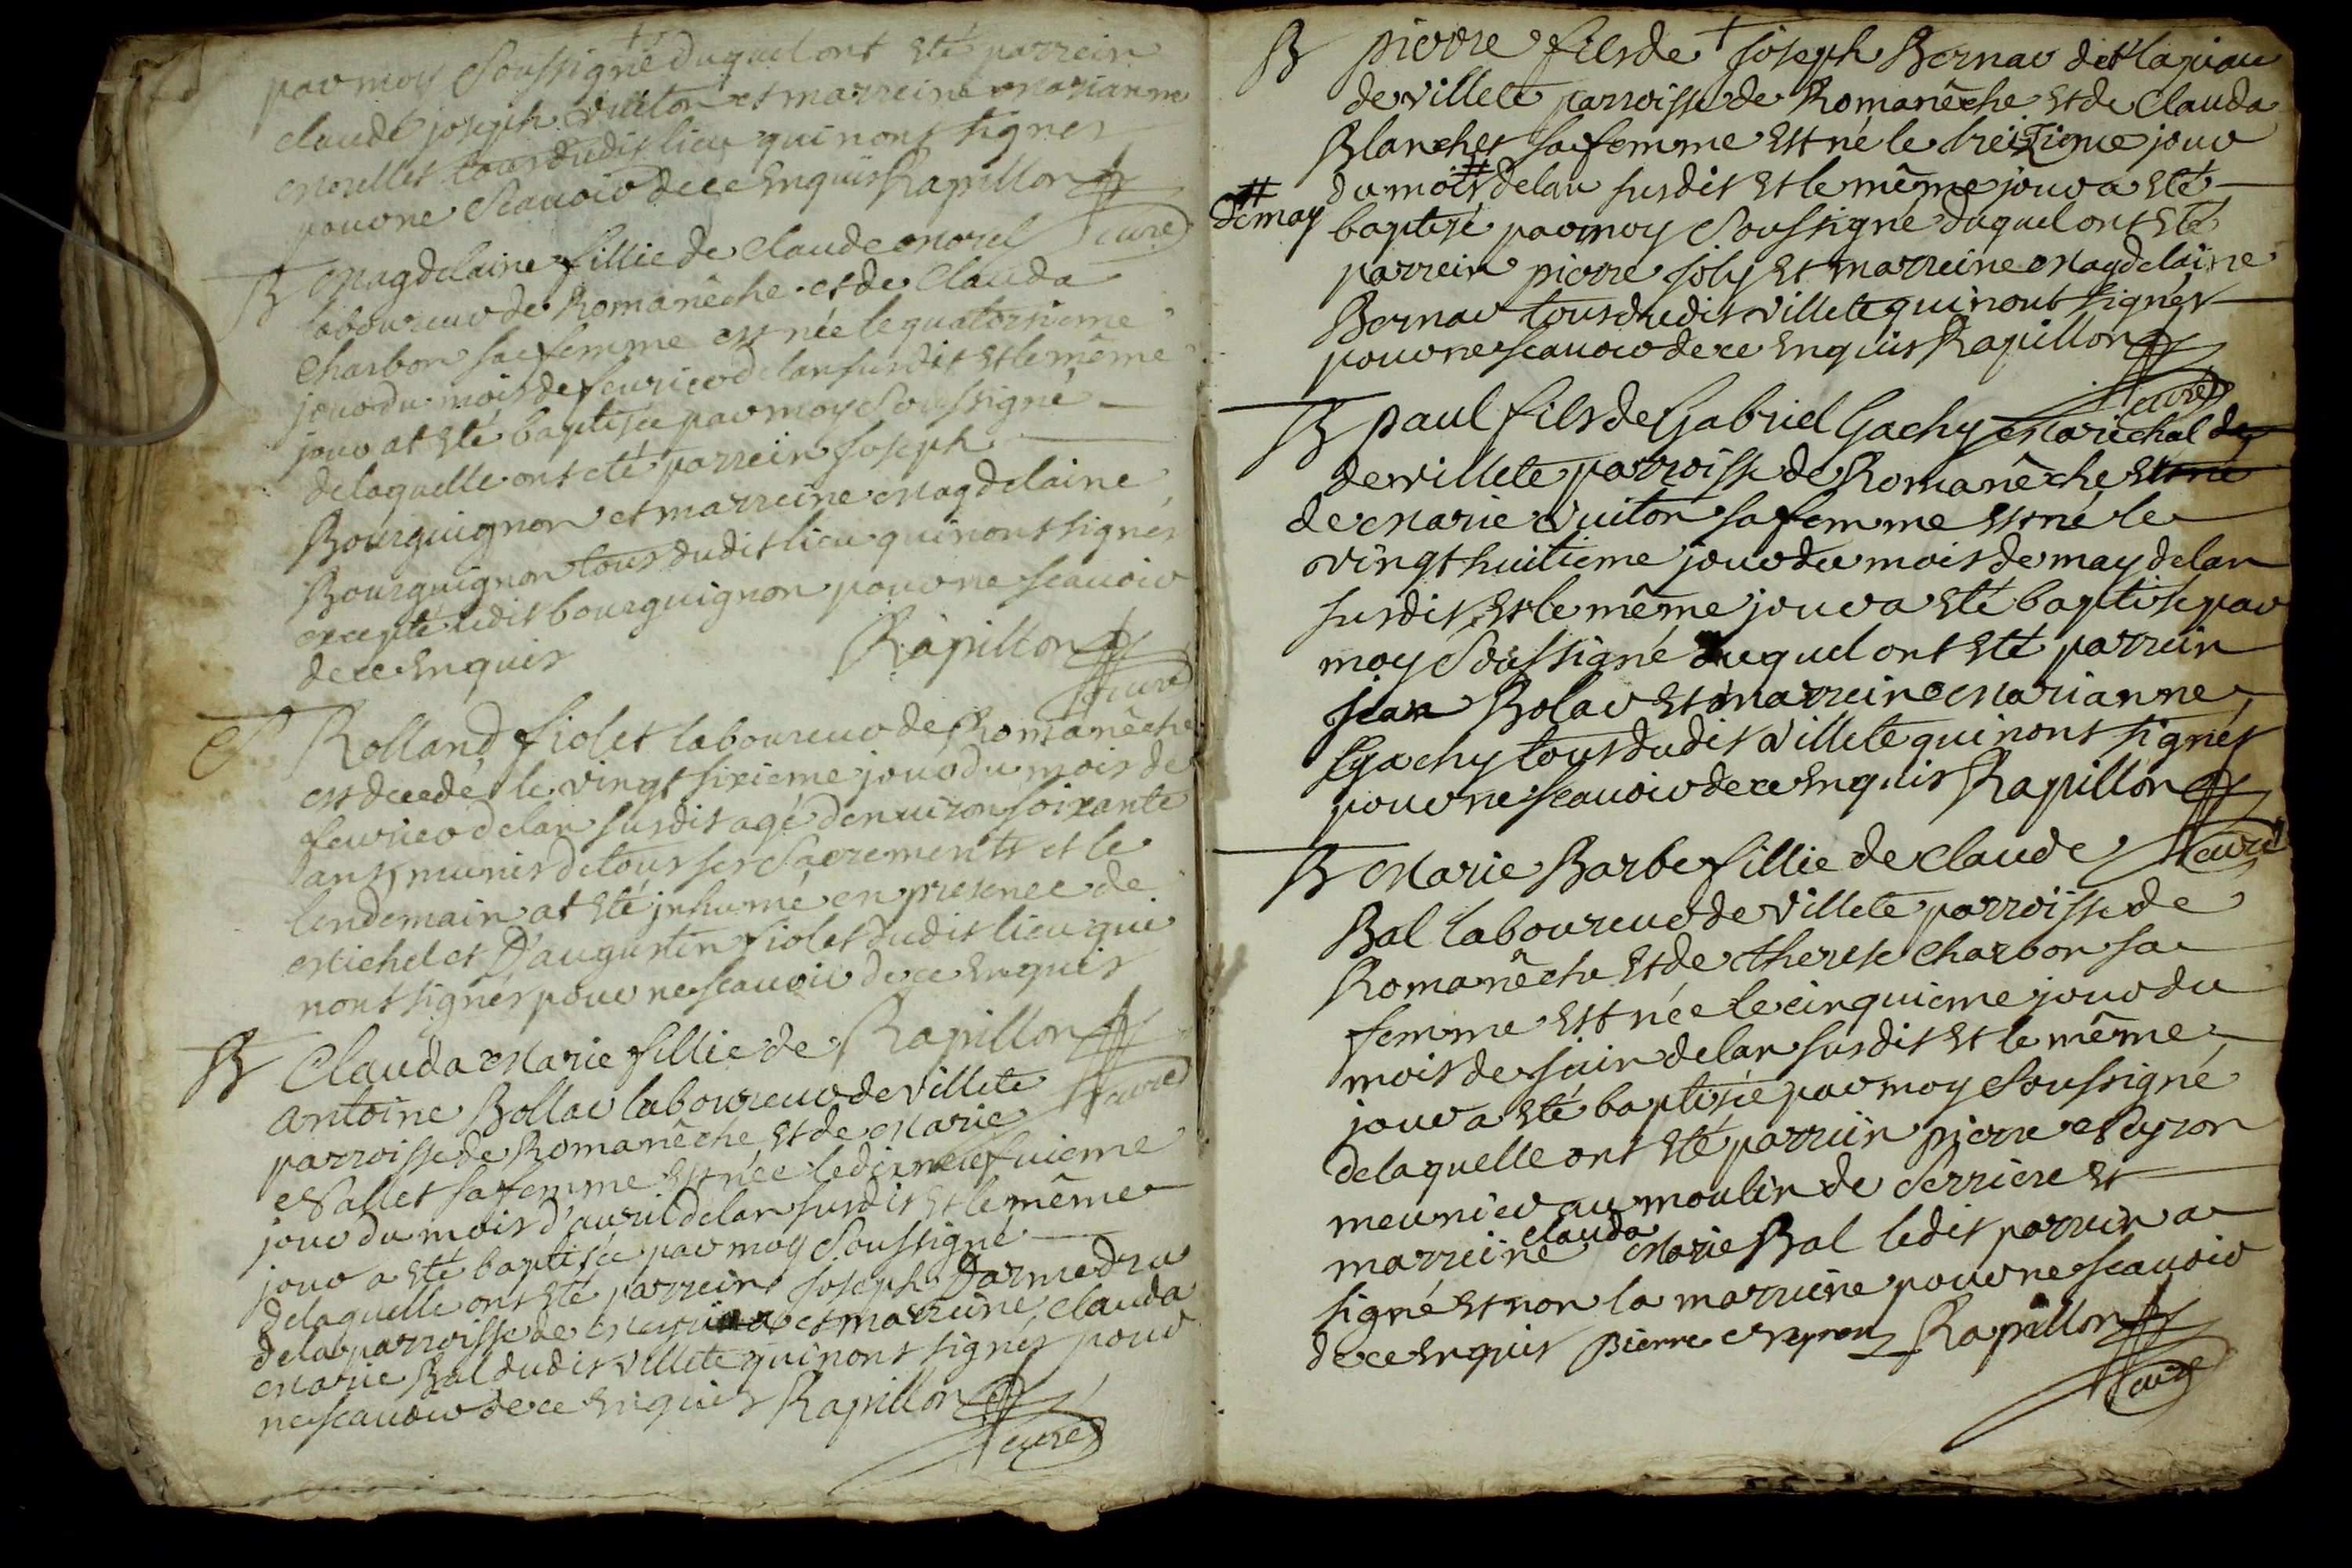 par moy Soussigné duquel ont Eté parrein
claude joseph vuiton et marreine marianne
morellet tous dudit lieu qui nont signes
pour ne Scavoir de ce Enquis Rapillon
curé
B Magdelaine fillie de Claude morel
laboureur de Romanêche et de Clauda
Charbon sa femme est née le quatorsieme
jour du mois de feurier delan susdit et le même
jour at Eté baptisée par moy Soussigné
delaquelle ont eté parrein Joseph
Bourguignon et marreine Magdelaine
Bourguignon tous dudit lieu qui nont signés
excepté ledit bourguignon pour ne scauoir
de ce Enquis Rapillon
curé
Rolland fiolet laboureur de Romanêche
est decedé le vingt sixieme jour du mois de
feurier delan susdit agé denuiron soixante
ans munis de tous ses Sacrements et le
lendemain at Eté jnhumé en presence de
Michel et D'augustin fiolet dudit lieu qui
nont signés pour ne scauoir de ce Enquis
Rapillon
curé
B Clauda Marie fillie de
antoine Bollar laboureur de Villete
parroisse de Romanêche Et de Marie
Vallet sa femme Est née le dixneufuieme
jour du mois d'auril delan susdit Et le même
jour a Eté baptisée par moy Soussigné
delaquelle ont Eté parrein Joseph
dela parroisse de et marreine Clauda
Marie Bal dudit Villete qui nont signés pour
ne scauoir de ce Enquis Rapillon
curé
B pierre fils de Joseph Bernar dit
de Villete parroisse de Romanêche Et de Clauda
Blanchet sa femme Est né le treizieme jour
du mois # delan susdit Et le même jour a Eté
# de may
baptisé par moy Soussigné duquel ont Eté
parrein pierre Joly Et marreine Magdelaine
Bernar tous dudit Villete qui nont signés
pour ne scauoir de ce Enquis Rapillon
curé
B paul fils de Gabriel Gachy Marichal de
de Villete parroisse de Romanêche Et né
de Marie Vuiton sa femme Est né le
vingt huitieme jour du mois de may delan
susdit Et le même jour a Eté baptisé par
moy Soussigné duquel ont Eté parrein
jean Bolar Et marreine Marianne
Gachy tous dudit Villete qui nont signés
pour ne scauoir de ce Enquis Rapillon
curé
B Marie Barbe fillie de Claude
Bal laboureur de Villete parroisse de
Romanêche Et de therese Charbon sa
femme Est née le cinquieme jour du
mois de Juin delan susdit Et le même
jour a Eté baptisée par moy Soussigné
delaquelle ont Eté parrein pierre
meunier au moulin de Serriere Et
marreine clauda Marie Bal ledit parrein a
signé Et non la marreine pour ne scauoir
de ce Enquis pierre Rapillon
curé